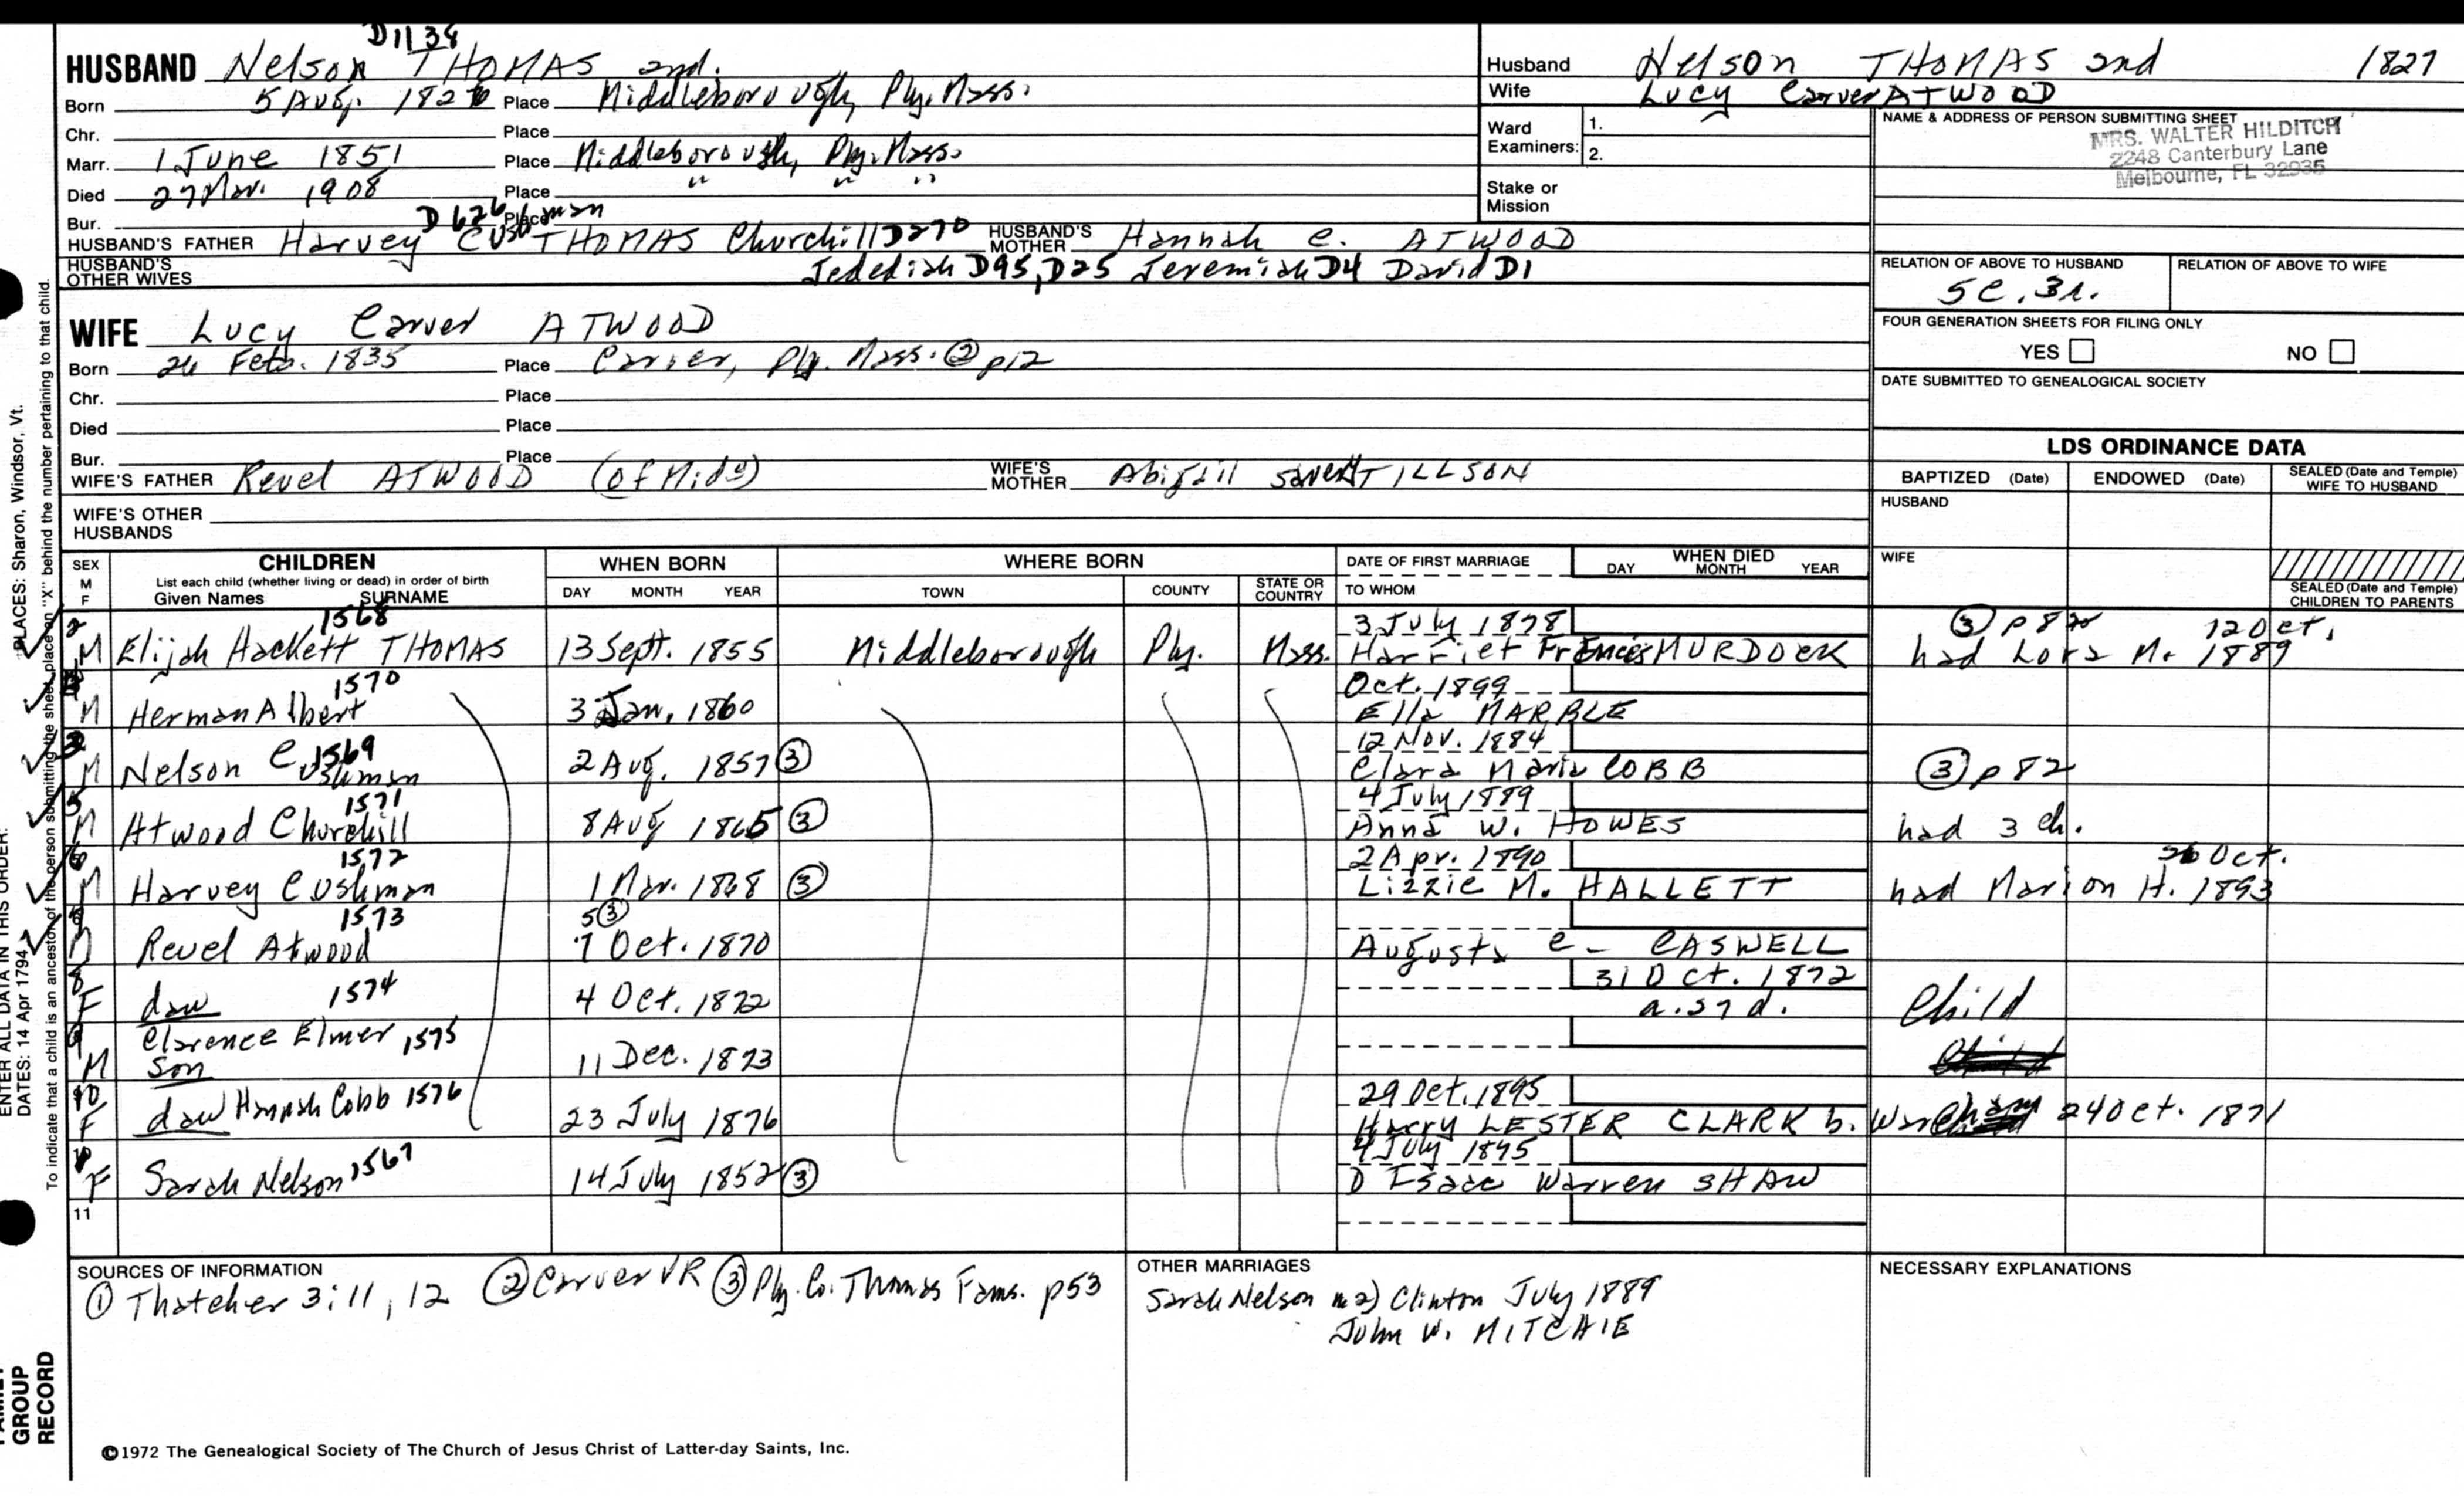 D1138
HUSBAND Nelson THOMAS 2nd.
Born 5 Aug. 182 Place Middleborough, Ply. Mass.
Chr. Place
Marr. 1 June 1851 Place Middleborough, Ply. Mass.
Died 27 Mar. 1908 Place " " "
Bur. D626 Place
HUSBAND'S FATHER Harvey Cushman THOMAS Churchill D270 HUSBAND'S MOTHER Hannah C. ATWOOD
HUSBAND'S OTHER WIVES Jedediah D95, D25 Jeremiah D4 David D1
Husband Nelson THOMAS 2nd 1827
Wife Lucy Carver ATWOOD
Ward Examiners: 1.
2.
Stake or Mission
NAME & ADDRESS OF PERSON SUBMITTING SHEET
MRS. WALTER HILDITCH
2248 Canterbury Lane
Melbourne, FL 32935
RELATION OF ABOVE TO HUSBAND RELATION OF ABOVE TO WIFE
5C, 3r.
FOUR GENERATION SHEETS FOR FILING ONLY
YES NO
DATE SUBMITTED TO GENEALOGICAL SOCIETY
WIFE Lucy Carver ATWOOD
Born 26 Feb. 1835 Place Carver, Ply. Mass. ② p12
Chr. Place
Died Place
Bur. Place
WIFE'S FATHER Revel ATWOOD (of Mido) WIFE'S MOTHER Abigail TILLSON
WIFE'S OTHER HUSBANDS
LDS ORDINANCE DATA
BAPTIZED (Date) ENDOWED (Date) SEALED (Date and Temple) WIFE TO HUSBAND
HUSBAND
WIFE
SEALED (Date and Temple) CHILDREN TO PARENTS
SEX M F CHILDREN List each child (whether living or dead) in order of birth Given Names SURNAME
WHEN BORN DAY MONTH YEAR
WHERE BORN TOWN COUNTY STATE OR COUNTRY
DATE OF FIRST MARRIAGE TO WHOM
WHEN DIED DAY MONTH YEAR
2 1568 3 July 1878 ③ p 82 12 Oct.
M Elijah Hackett THOMAS 13 Sept. 1855 Middleborough Ply. Mass. Harriet Frances MURDOCK had Lora M. 1889
1570 Oct. 1899
M Herman Albert 3 Jan. 1860 Ella MARBLE
3 1569 12 Nov. 1884
M Nelson Cushman 2 Aug. 1857 ③ Clara Maria COBB ③ p 82
5 1571 4 July 1889
M Atwood Churchill 8 Aug 1865 ③ Anna W. HOWES had 3 ch.
6 1572 2 Apr. 1890 26 Oct.
M Harvey Cushman 1 Mar. 1868 ③ Lizzie M. HALLETT had Marion H. 1893
1573 5③
M Revel Atwood 7 Oct. 1870 Augusta C. CASWELL
8 1574 31 Oct. 1872
F daw 4 Oct. 1872 a. 27 d. Child
9 Clarence Elmer 1575
M Son 11 Dec. 1873
10 29 Oct. 1895
F daw Hannah Cobb 1576 23 July 1876 Harry LESTER CLARK b. Wareham 24 Oct. 1871
4 July 1895
F Sarah Nelson 1567 14 July 1852 ③ D Isaac Warren SHAW
11
SOURCES OF INFORMATION
① Thatcher 3:11, 12 ② Carver VR ③ Ply. Co. Thomas Fams. p53
OTHER MARRIAGES
Sarah Nelson m 2) Clinton July 1889
John W. MITCHIE
NECESSARY EXPLANATIONS
©1972 The Genealogical Society of The Church of Jesus Christ of Latter-day Saints, Inc.
PLACES: Sharon, Windsor, Vt.
To indicate that a child is an ancestor of the person submitting the sheet, place an "X" behind the number pertaining to that child.
ENTER ALL DATA IN THIS ORDER:
DATES: 14 Apr 1794
FAMILY GROUP RECORD